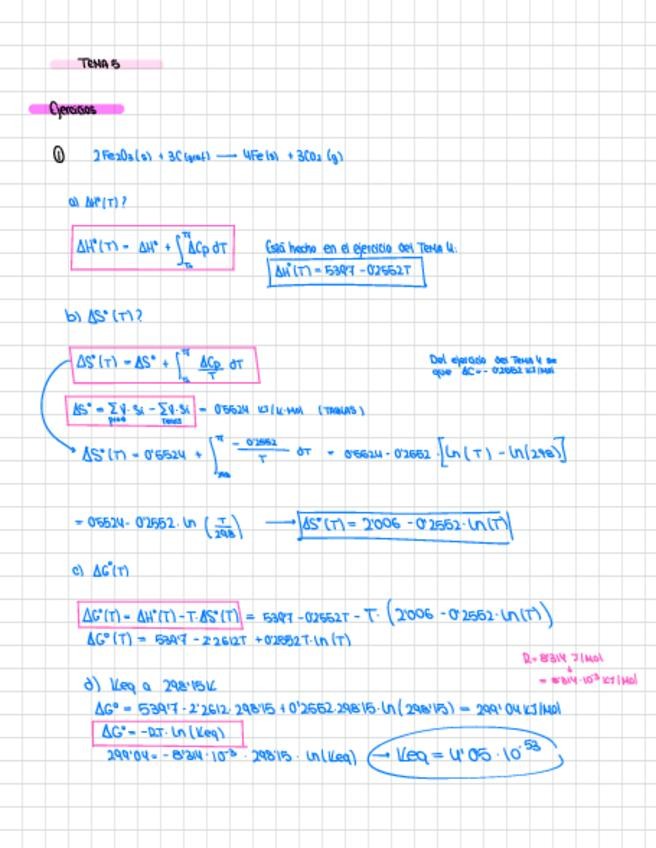 TEMA 5
Ejercicios
① 2Fe2O3(s) + 3C(graf) → 4Fe(s) + 3CO2(g)
a) ΔHº(T)?
ΔHº(T) = ΔHº + ∫ ΔCp dT
Está hecho en el ejercicio del Tema 4.
ΔHº(T) = 539'7 - 0'2552T
b) ΔSº(T)?
ΔSº(T) = ΔSº + ∫ ΔCp/T dT
Del ejercicio del Tema 4 se
que ΔC = - 0'2552 KJ/Mol
ΔSº = ΣV·Si - ΣV·Si = 0'5524 KJ/K·Mol (TABLAS)
ΔSº(T) = 0'5524 + ∫ - 0'2552/T dT = 0'5524 - 0'2552 · [ln(T) - ln(298)]
= 0'5524 - 0'2552 · ln (T/298) → ΔSº(T) = 2'006 - 0'2552 · ln(T)
c) ΔGº(T)
ΔGº(T) = ΔHº(T) - T·ΔSº(T) = 539'7 - 0'2552T - T · (2'006 - 0'2552 · ln(T))
ΔGº(T) = 539'7 - 2'2612T + 0'2552T·ln(T)
R = 8'314 J/Mol
= 8'314·10⁻³ KJ/Mol
d) Keq a 298'15K
ΔGº = 539'7 - 2'2612 · 298'15 + 0'2552 · 298'15 · ln(298'15) = 299'04 KJ/Mol
ΔGº = -RT · ln(Keq)
299'04 = - 8'314 · 10⁻³ · 298'15 · ln(Keq) → Keq = 4'05 · 10⁻⁵³